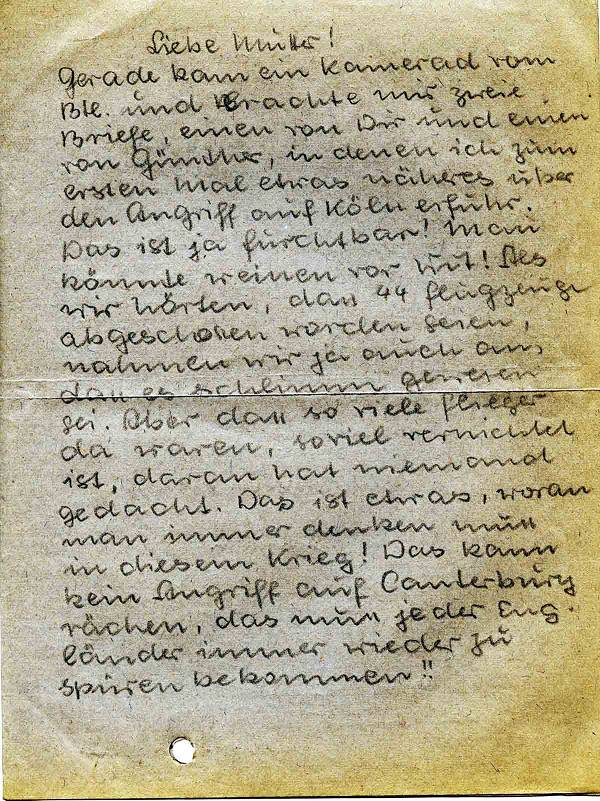 Liebe Mutter!
Gerade kam ein Kamerad vom
Btl. und brachte mir zweie
Briefe, einen von Dir und einen
von Günther, in denen ich zum
ersten Mal etwas näheres über
den Angriff auf Köln erfuhr.
Das ist ja furchtbar! Man
könnte weinen vor Wut! Als
wir hörten, dass 44 Flugzeuge
abgeschossen worden seien,
nahmen wir ja auch an,
dass es schlimm gewesen
sei. Aber dass so viele Flieger
da waren, soviel vernichtet
ist, daran hat niemand
gedacht. Das ist etwas, woran
man immer denken muss
in diesem Krieg! Das kann
kein Angriff auf Canterbury
rächen, das muss jeder Eng-
länder immer wieder zu
spüren bekommen!!